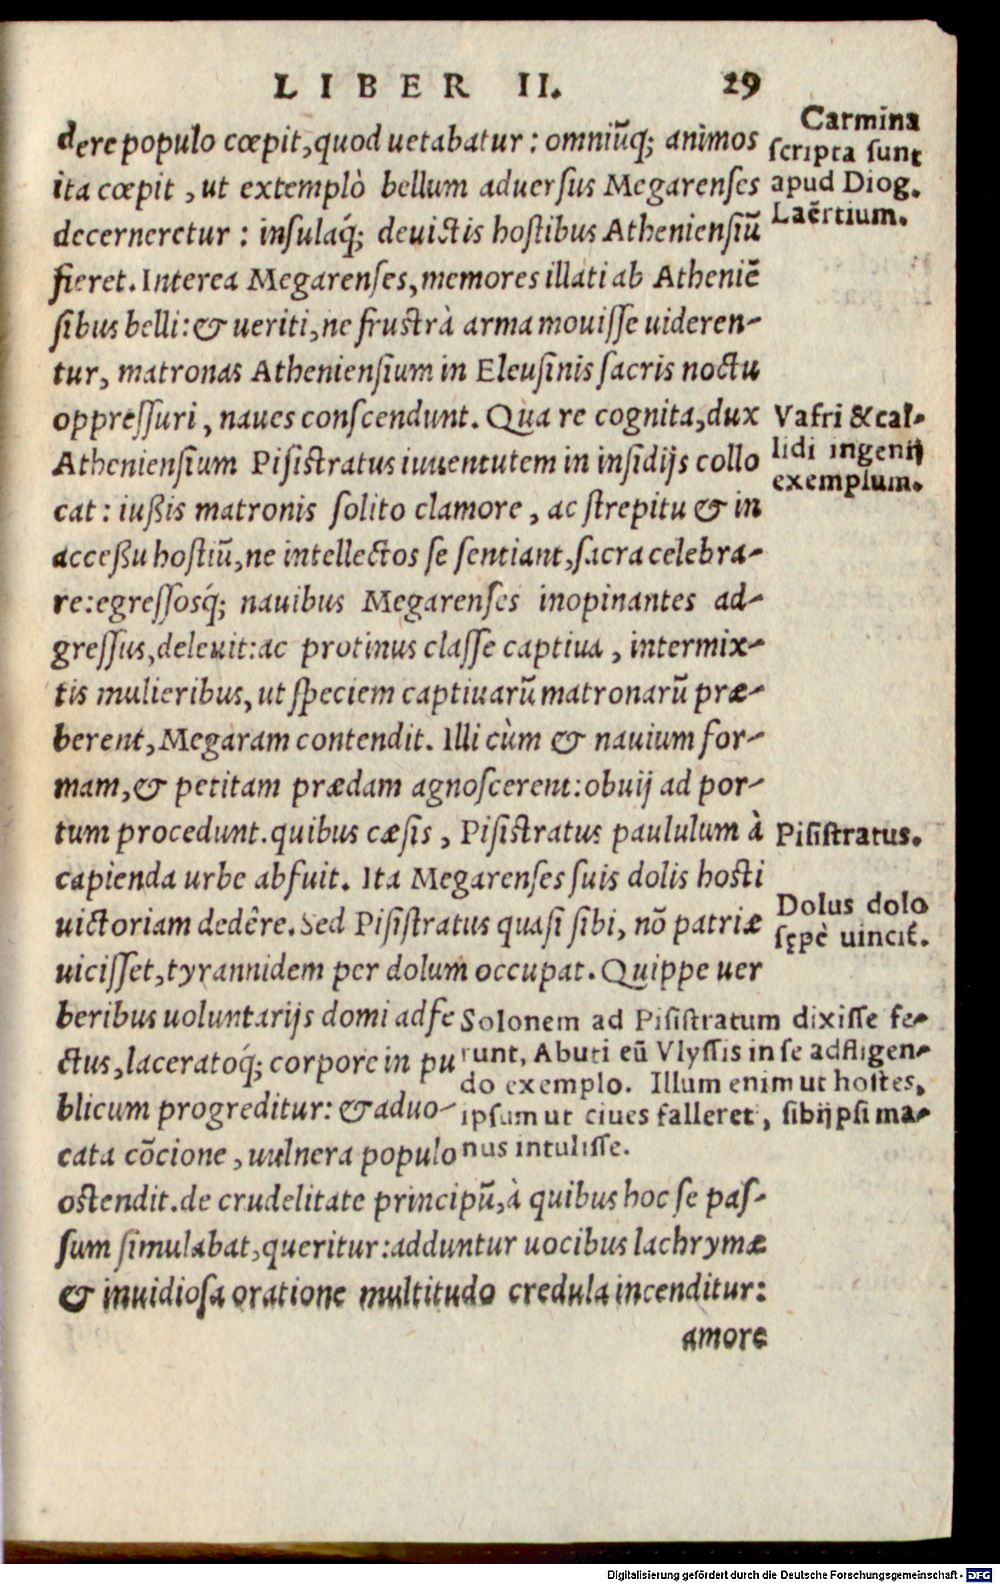 LIBER II. 29
dere populo cœpit, quod uetabatur: omniũq́; animos
ita cœpit, ut extemplò bellum aduersus Megarenses
decerneretur: insulaq́; deuictis hostibus Atheniensiũ
fieret. Interea Megarenses, memores illati ab Atheniẽ
sibus belli: & ueriti, ne frustrà arma mouisse uideren-
tur, matronas Atheniensium in Eleusinis sacris noctu
oppressuri, naues conscendunt. Qua re cognita, dux
Atheniensium Pisistratus iuuentutem in insidijs collo
cat: iußis matronis solito clamore, ac strepitu & in
acceßu hostiũ, ne intellectos se sentiant, sacra celebra-
re: egressosq́; nauibus Megarenses inopinantes ad-
gressus, deleuit: ac protinus classe captiua, intermix-
tis mulieribus, ut speciem captiuarũ matronarũ præ-
berent, Megaram contendit. Illi cùm & nauium for-
mam, & petitam prædam agnoscerent: obuij ad por-
tum procedunt. quibus cæsis, Pisistratus paululum à
capienda urbe abfuit. Ita Megarenses suis dolis hosti
uictoriam dedêre. Sed Pisistratus quasi sibi, nõ patriæ
uicisset, tyrannidem per dolum occupat. Quippe uer
beribus uoluntarijs domi adfe
ctus, laceratoq́; corpore in pu
blicum progreditur: & aduo-
cata cõcione, uulnera populo
ostendit. de crudelitate principũ, à quibus hoc se pas-
sum simulabat, queritur: adduntur uocibus lachrymæ
& inuidiosa oratione multitudo credula incenditur:
amore
Carmina
scripta sunt
apud Diog.
Laẽrtium.
Vafri & cal-
lidi ingenij
exemplum.
Pisistratus.
Dolus dolo
sępè uincit.
Solonem ad Pisistratum dixisse fe-
runt, Abuti eũ Vlyssis in se adfligen-
do exemplo. Illum enim ut hostes,
ipsum ut ciues falleret, sibijpsi ma-
nus intulisse.
Digitalisierung gefördert durch die Deutsche Forschungsgemeinschaft - DFG